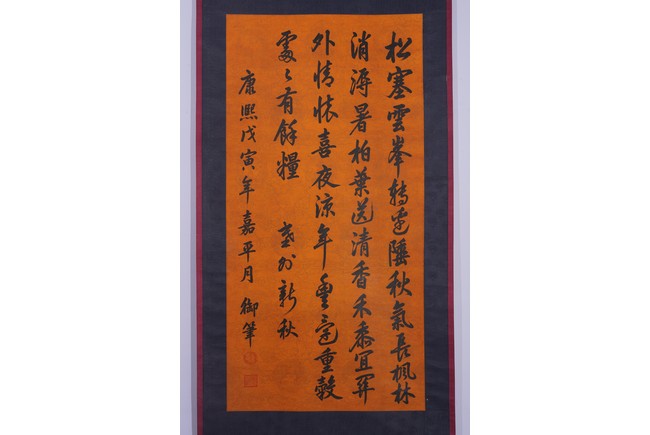 松塞雲峯轉邊陲秋氣長楓林
消溽暑柏葉送清香禾黍宜關
外情懷喜夜涼年豐重穀
處〻有餘糧 塞外新秋
康熙戊寅年嘉平月 御筆